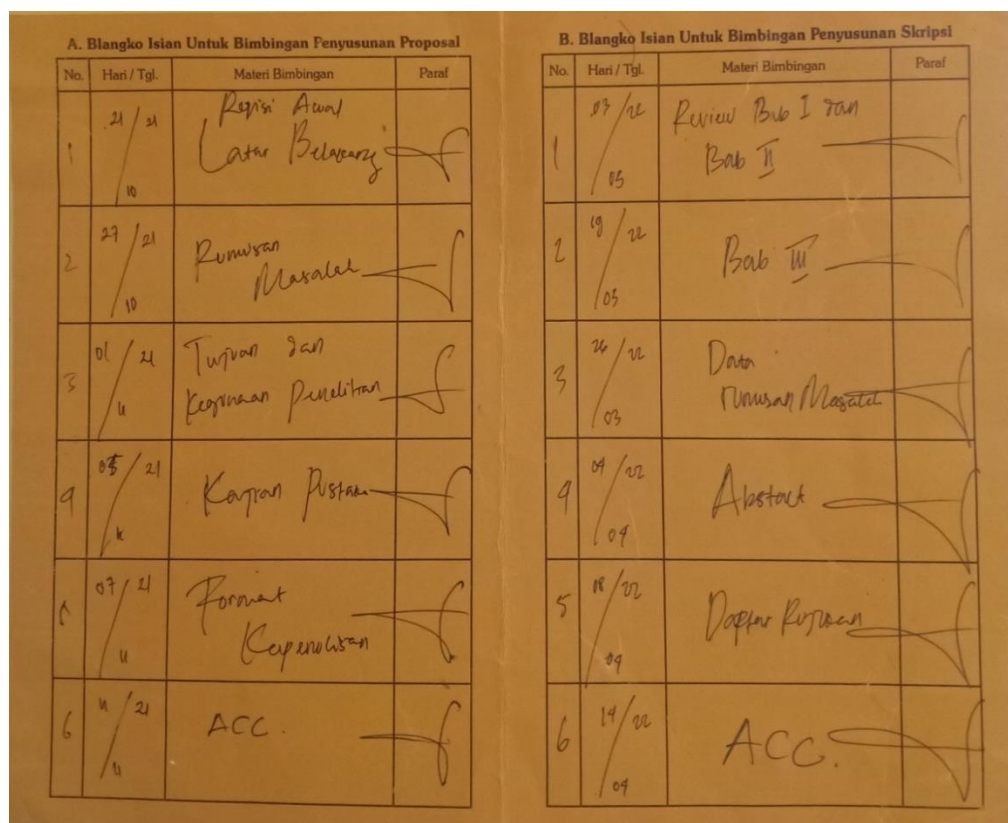 A. Blangko Isian Untuk Bimbingan Penyusunan Proposal
No. Hari / Tgl. Materi Bimbingan Paraf
1 21 / 21 Revisi Awal
10 Latar Belakang
2 27 / 21 Rumusan
10 Masalah
3 01 / 21 Tujuan dan
11 Kegunaan Penelitian
4 05 / 21 Kajian Pustaka
11
5 07 / 21 Format
11 Kepenulisan
6 11 / 21 ACC.
11
B. Blangko Isian Untuk Bimbingan Penyusunan Skripsi
No. Hari / Tgl. Materi Bimbingan Paraf
1 03 / 22 Review Bab I dan
03 Bab II
2 19 / 22 Bab III
03
3 26 / 22 Data
03 rumusan Masalah
4 04 / 22 Abstract
04
5 08 / 22 Daftar Rujukan
04
6 14 / 22 ACC.
04